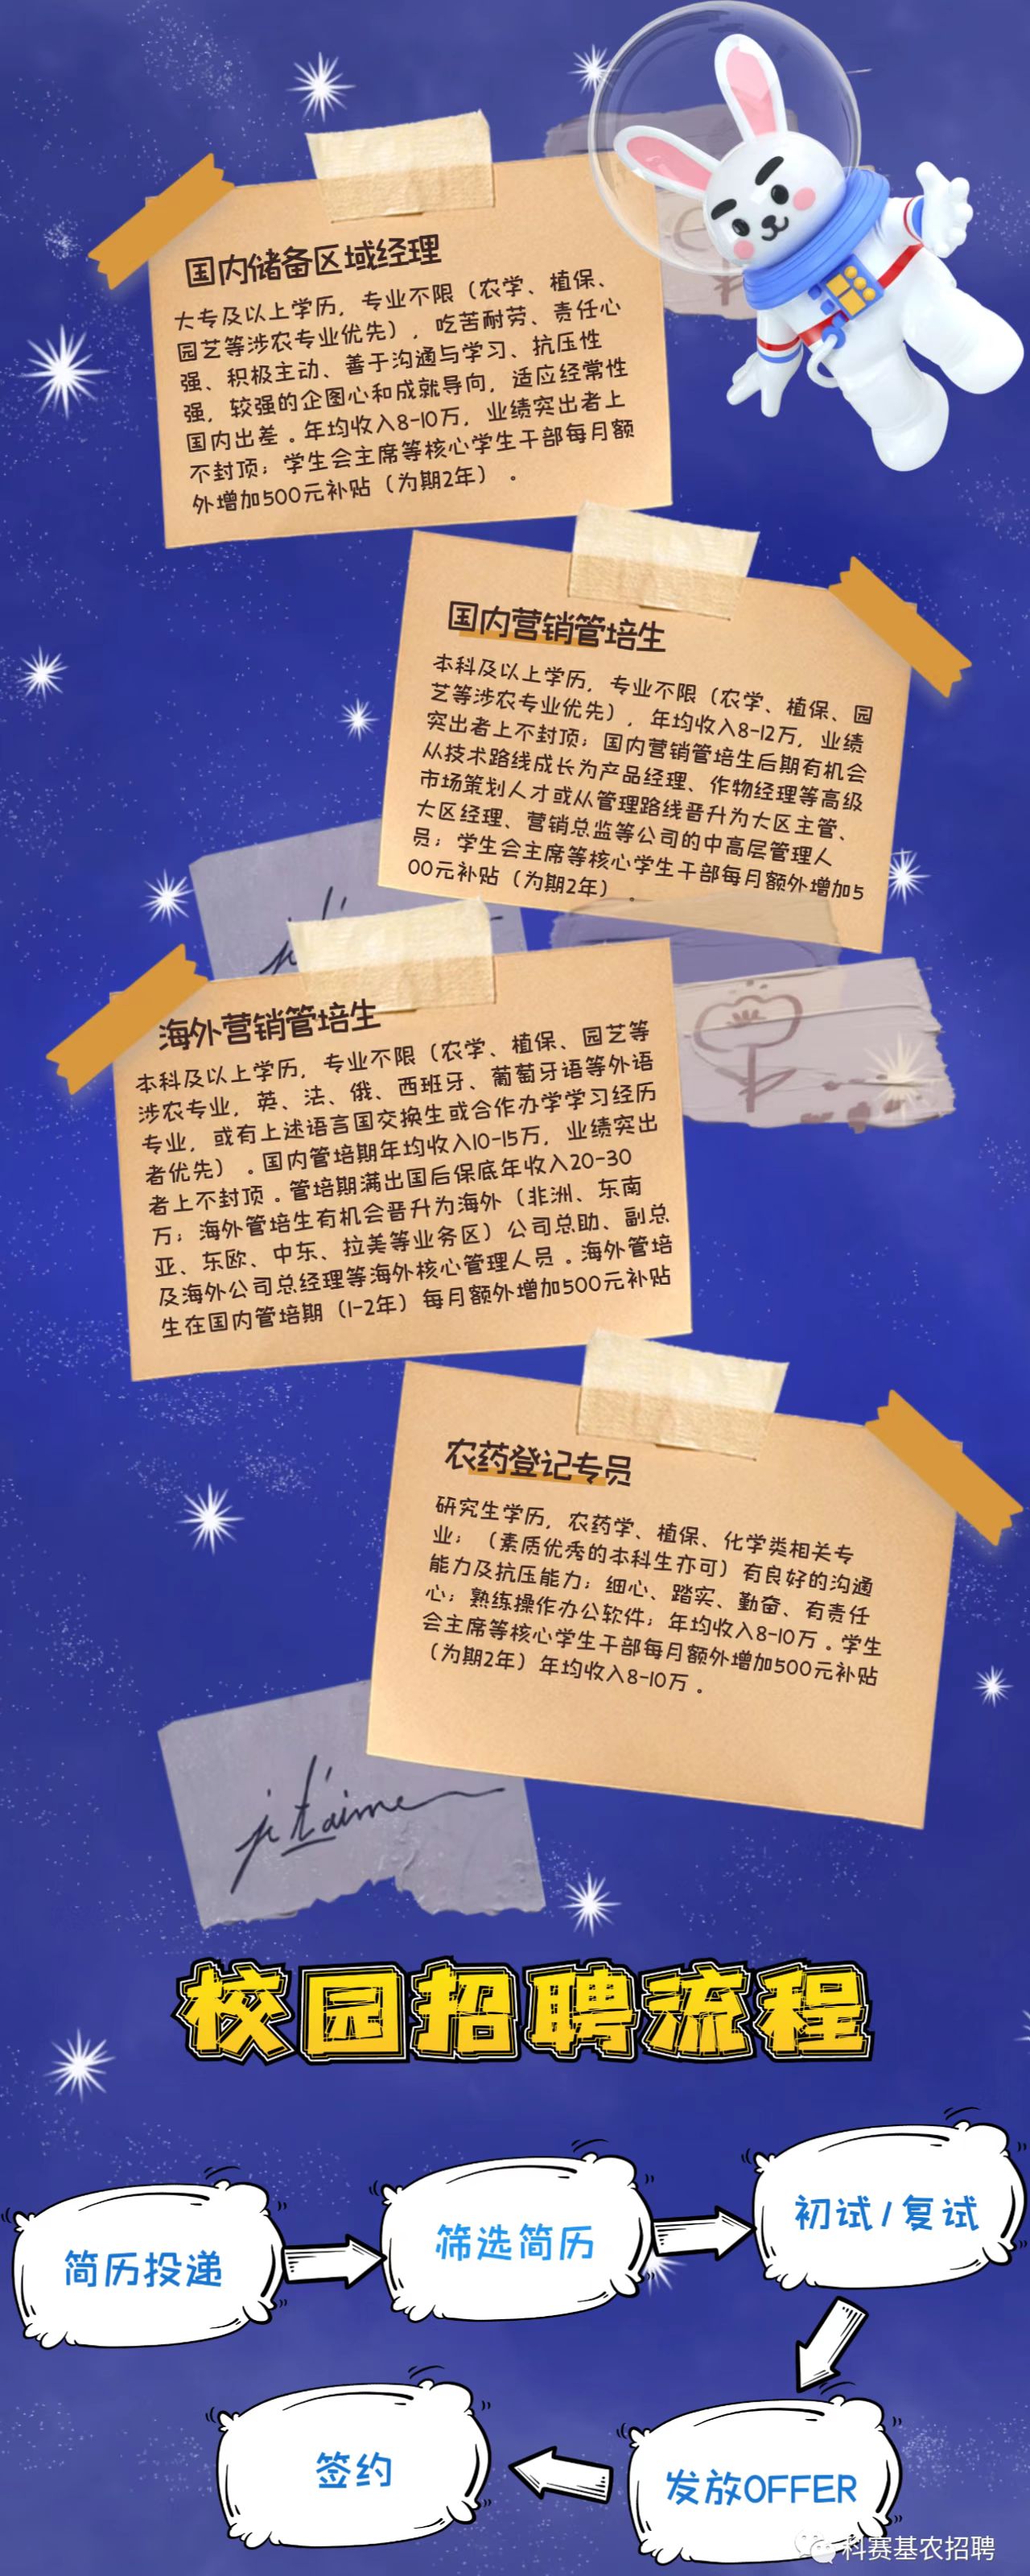 国内储备区域经理
大专及以上学历，专业不限（农学、植保、
园艺等涉农专业优先），吃苦耐劳、责任心
强、积极主动、善于沟通与学习、抗压性
强，较强的企图心和成就导向，适应经常性
国内出差。年均收入8-10万，业绩突出者上
不封顶；学生会主席等核心学生干部每月额
外增加500元补贴（为期2年）。
国内营销管培生
本科及以上学历，专业不限（农学、植保、园
艺等涉农专业优先），年均收入8-12万，业绩
突出者上不封顶；国内营销管培生后期有机会
从技术路线成长为产品经理、作物经理等高级
市场策划人才或从管理路线晋升为大区主管、
大区经理、营销总监等公司的中高层管理人
员；学生会主席等核心学生干部每月额外增加5
00元补贴（为期2年）。
海外营销管培生
本科及以上学历，专业不限（农学、植保、园艺等
涉农专业，英、法、俄、西班牙、葡萄牙语等外语
专业，或有上述语言国交换生或合作办学学习经历
者优先）。国内管培期年均收入10-15万，业绩突出
者上不封顶。管培期满出国后保底年收入20-30
万；海外管培生有机会晋升为海外（非洲、东南
亚、东欧、中东、拉美等业务区）公司总助、副总
及海外公司总经理等海外核心管理人员。海外管培
生在国内管培期（1-2年）每月额外增加500元补贴
农药登记专员
研究生学历，农药学、植保、化学类相关专
业；（素质优秀的本科生亦可）有良好的沟通
能力及抗压能力；细心、踏实、勤奋、有责任
心；熟练操作办公软件；年均收入8-10万。学生
会主席等核心学生干部每月额外增加500元补贴
（为期2年）年均收入8-10万。
je t'aime
校园招聘流程
简历投递
筛选简历
初试/复试
签约
发放OFFER
科赛基农招聘